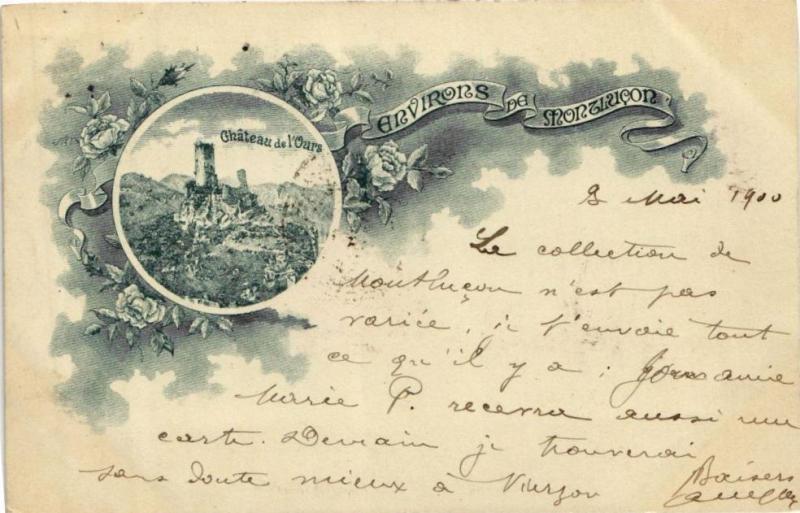 Château de l'Ours
ENVIRONS DE MONTLUÇON
Mai 1900
La collection de
Montluçon n'est pas
variée, je t'envoie tout
ce qu'il y a ;
Marie P. recevra aussi une
carte. Demain je trouverai
sans doute mieux à Vierzon
Baisers